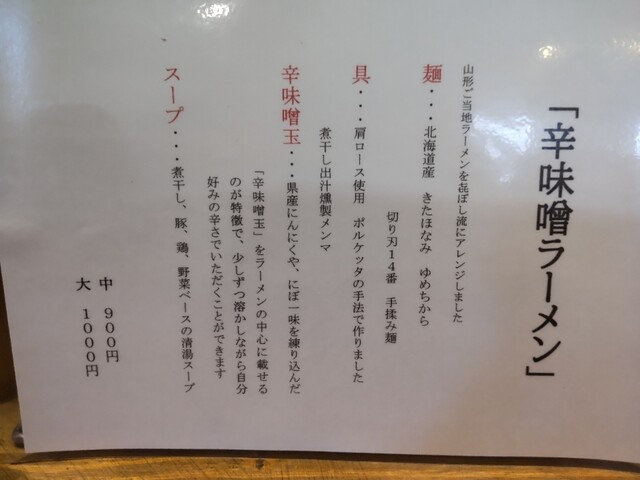 「辛味噌ラーメン」
山形ご当地ラーメンを㐂ぼし流にアレンジしました
麺・・・北海道産　きたほなみ　ゆめちから
切り刃14番　手揉み麺
具・・・肩ロース使用　ポルケッタの手法で作りました
煮干し出汁燻製メンマ
辛味噌玉・・・県産にんにくや、にぼ一味を練り込んだ
「辛味噌玉」をラーメンの中心に載せる
のが特徴で、少しずつ溶かしながら自分
好みの辛さでいただくことができます
スープ・・・煮干し、豚、鶏、野菜ベースの清湯スープ
中　900円
大　1000円